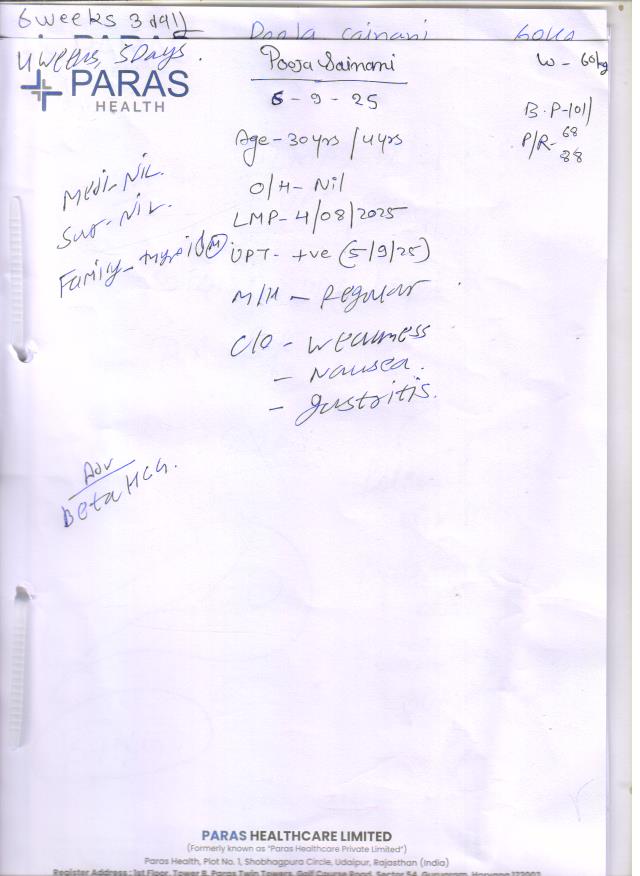 6 weeks 3 days
Pooja Sainani
60KG
4 weeks, 5 Days.
PARAS
HEALTH
Pooja Sainani
W - 60kg
6 - 9 - 25
B.P-101/
68
P/R-
88
Age - 30yrs / 4yrs
Medi- Nil.
O/H - Nil
Sur- Nil.
LMP- 4/08/2025
Family - thyroid (M)
UPT- +ve (5/9/25)
M/H - Regular
C/O - Weakness
- Nausea.
- gastritis.
Adv
Beta HCG.
PARAS HEALTHCARE LIMITED
(Formerly known as "Paras Healthcare Private Limited")
Paras Health, Plot No. 1, Shobhagpura Circle, Udaipur, Rajasthan (India)
Register Address : 1st Floor, Tower B, Paras Twin Towers, Golf Course Road, Sector 54, Gurugram, Haryana 122002